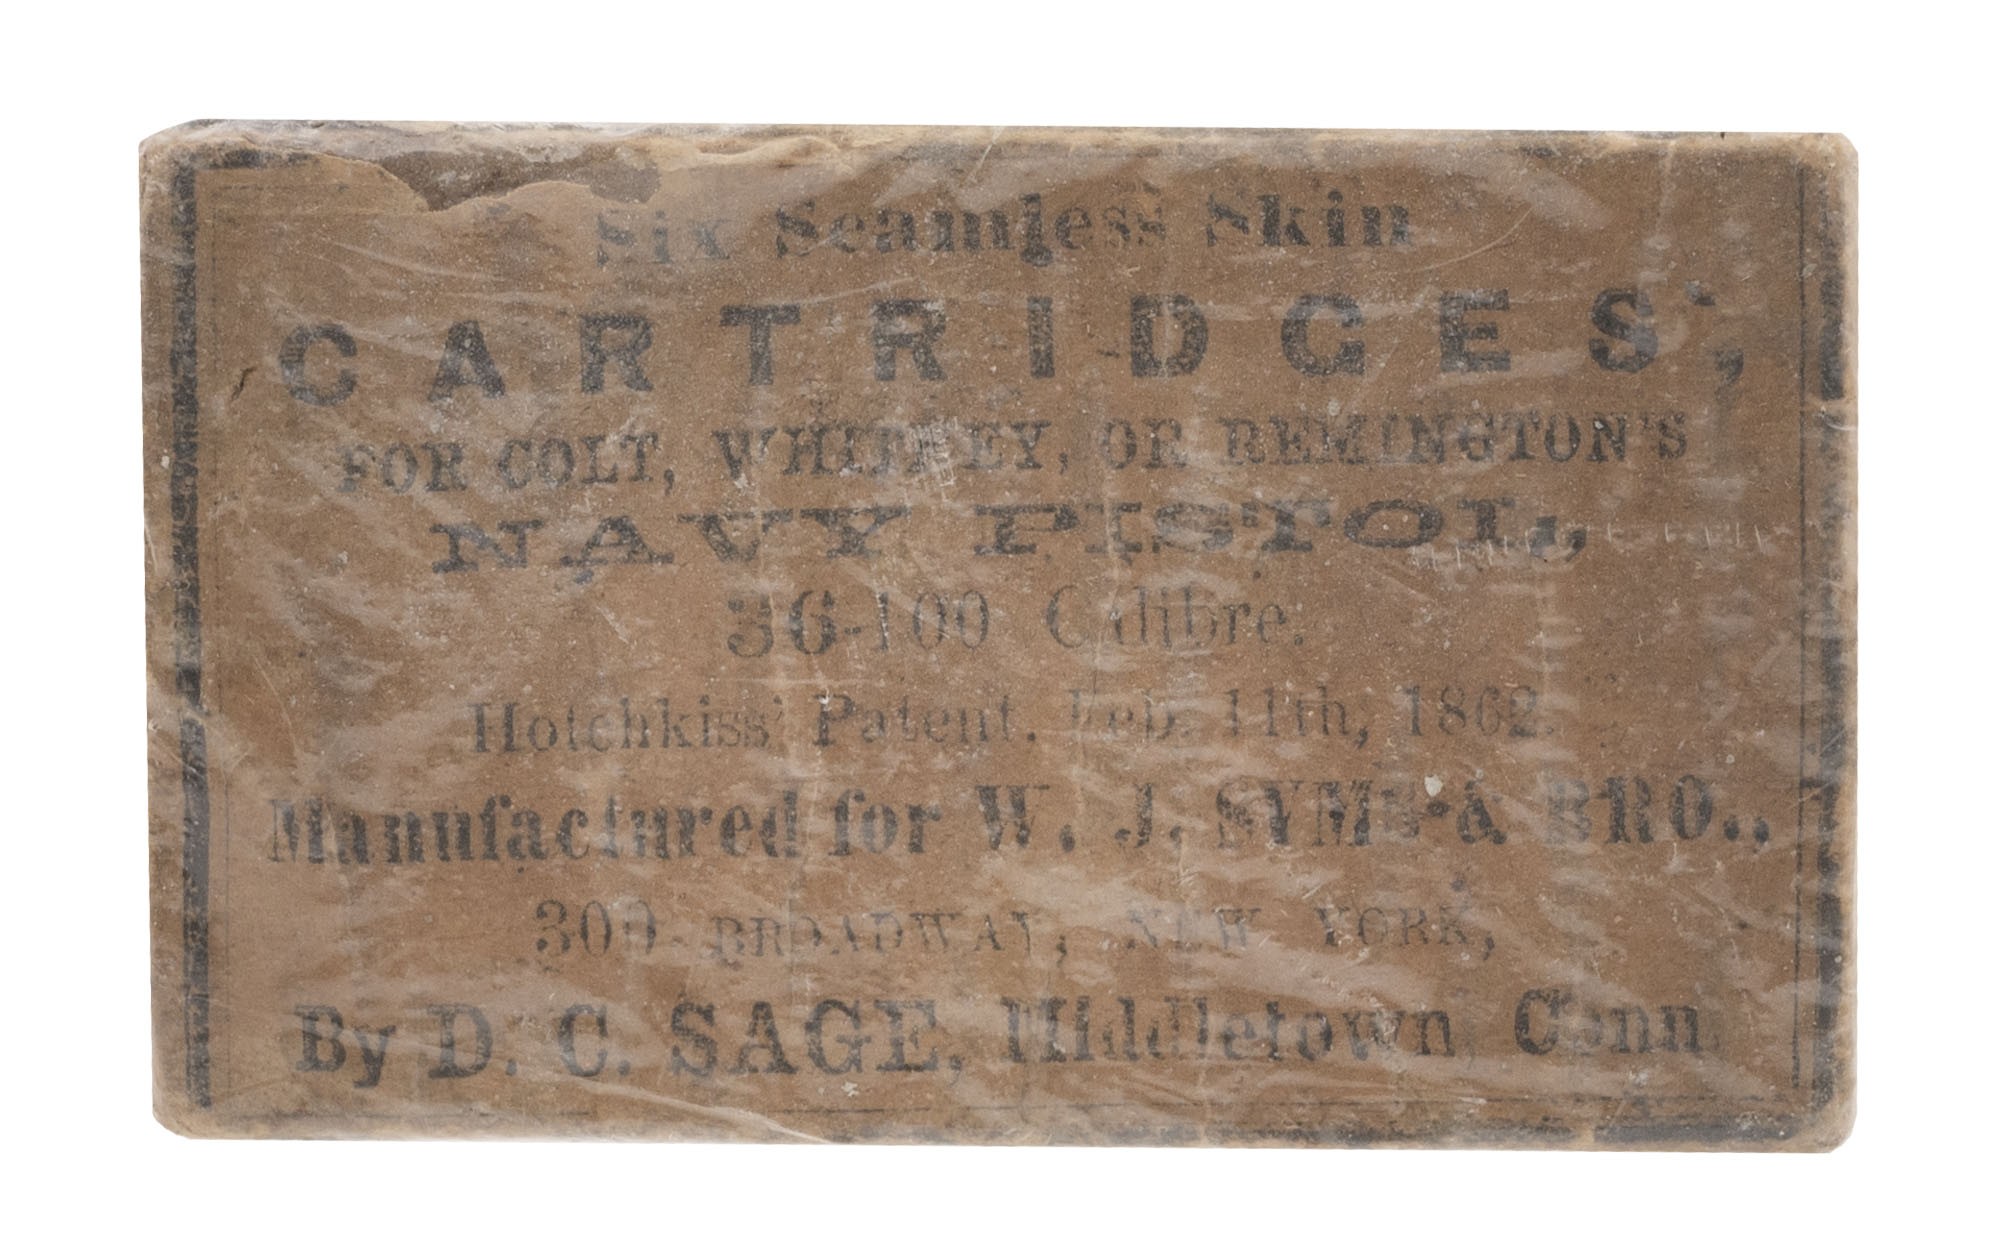 Six Seamless Skin
CARTRIDGES,
FOR COLT, WHITNEY, OR REMINGTON'S
NAVY PISTOL,
36-100 Calibre.
Hotchkiss' Patent. Feb. 11th, 1862.
Manufactured for W. J. SYMS & BRO.,
300 BROADWAY, NEW YORK,
By D. C. SAGE, Middletown, Conn